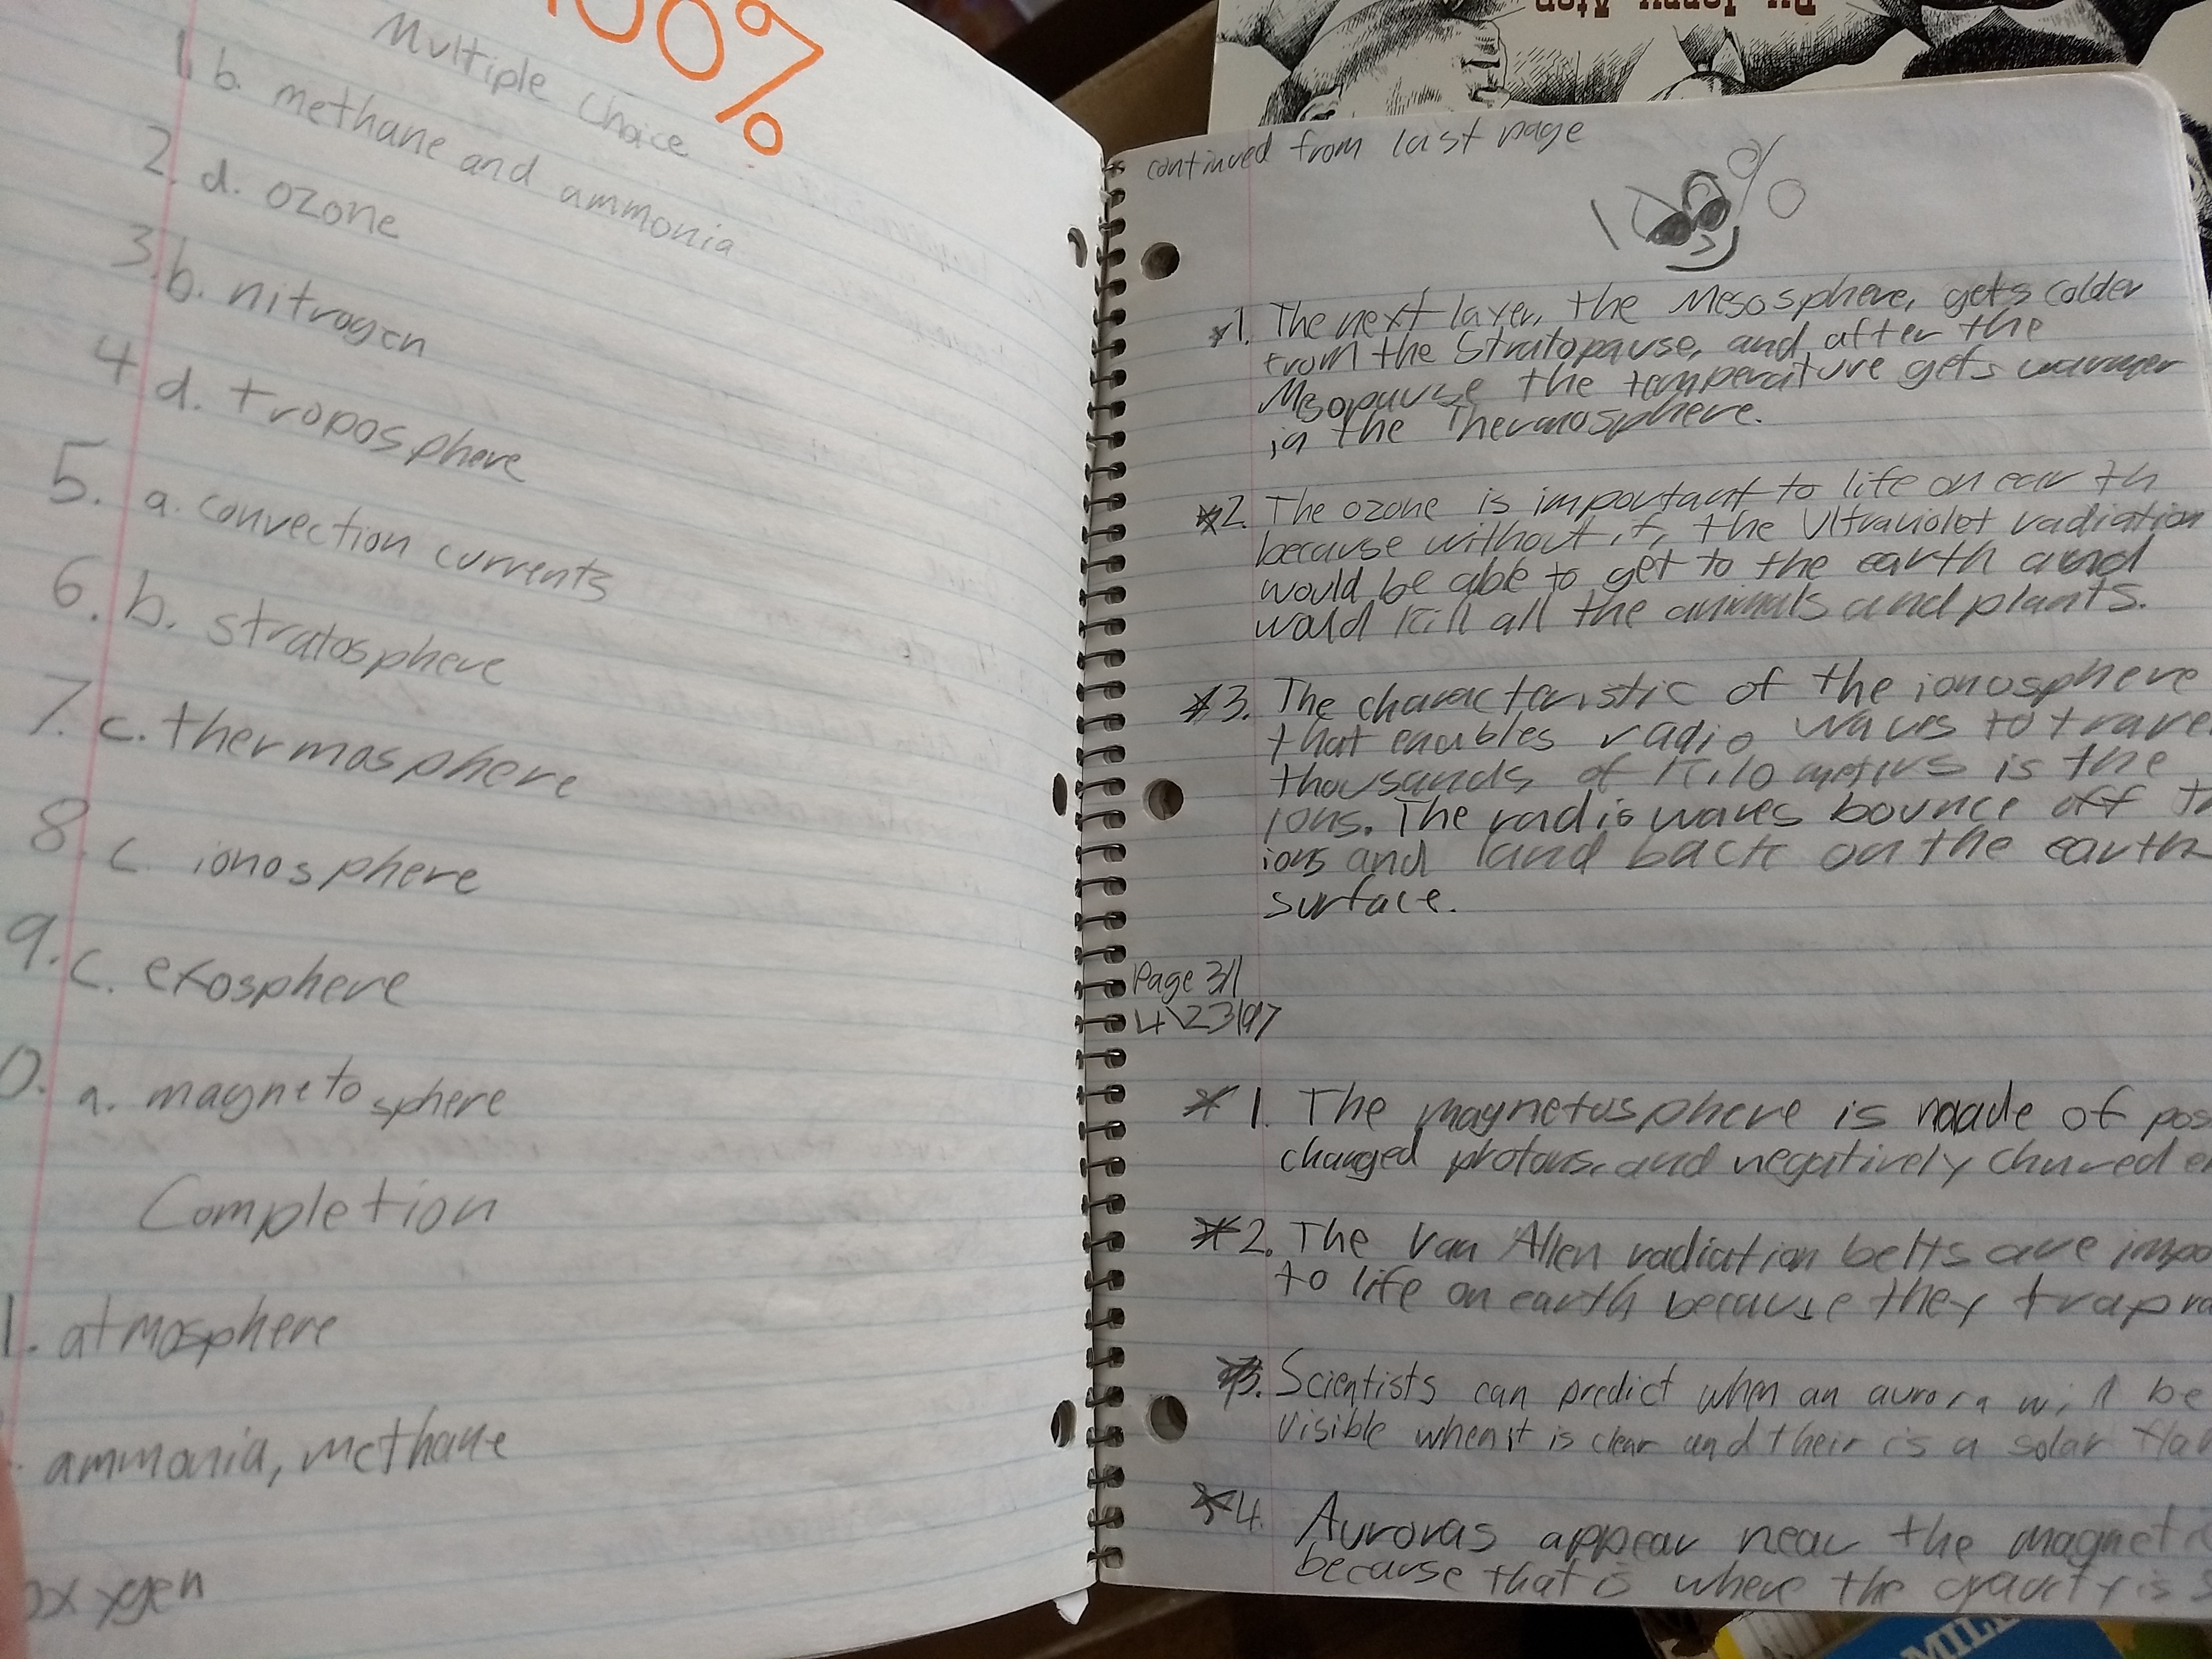 100%
Multiple Choice
1. b. methane and ammonia
2. d. ozone
3. b. nitrogen
4. d. troposphere
5. a. convection currents
6. b. stratosphere
7. c. thermosphere
8. c. ionosphere
9. c. exosphere
0. a. magnetosphere
Completion
1. atmosphere
ammonia, methane
oxygen
continued from last page
100%
*1. The next layer, the Mesosphere, gets colder
from the Stratopause, and after the
Mesopause the temperature gets warmer
in the Thermosphere.
*2. The ozone is important to life on earth
because without it, the Ultraviolet radiation
would be able to get to the earth and
would kill all the animals and plants.
*3. The characteristic of the ionosphere
that enables radio waves to trave
thousands of kilometers is the
ions. The radio waves bounce off th
ions and land back on the earth
surface.
Page 311
4\23\97
*1. The magnetosphere is made of pos
charged protons, and negatively chared e
*2. The Van Allen radiation belts are impo
to life on earth because they trap ra
*3. Scientists can predict when an aurora will be
visible when it is clear and their is a solar fla
*4. Auroras appear near the magnetic
because that is where the gravity is s
Dr. Jenny Aton
MILL